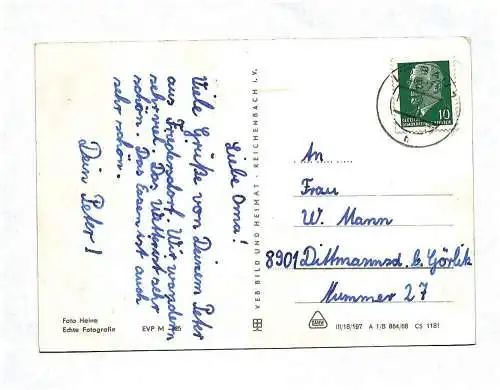 Liebe Oma!
Viele Grüße von Deinem Peter
aus Friedersdorf. Wir wandern
sehr viel. Das Wetter ist sehr
schön. Das Essen ist auch
sehr schön.
Dein Peter!
Foto Heine
Echte Fotografie
EVP M
VEB BILD UND HEIMAT · REICHENBACH i. V.
10
An
Frau
W. Mann
8901 Dittmannsd. b. Görlitz
Nummer 27
III/18/197 A 1/B 884/68 CS 1181